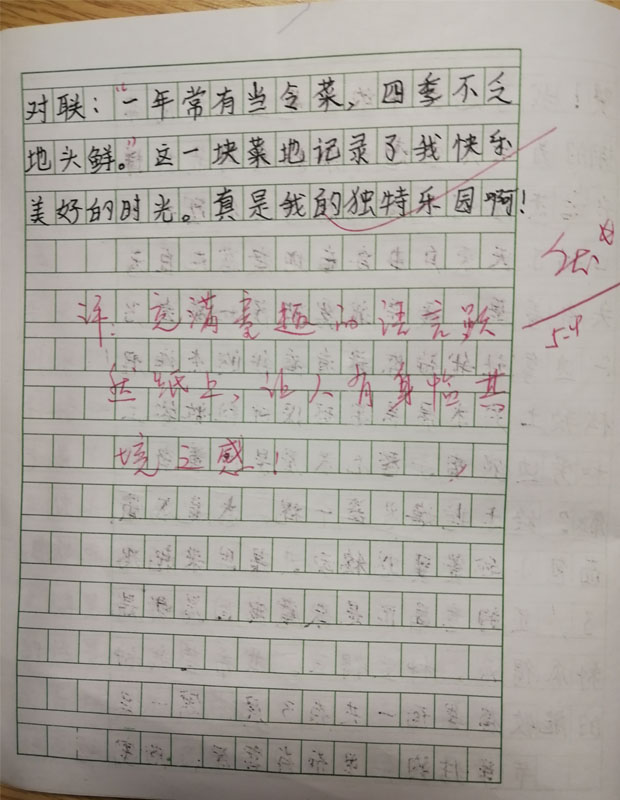 对联：“一年常有当令菜，四季不乏
地头鲜。”这一块菜地记录了我快乐
美好的时光。真是我的独特乐园啊！
评：充满童趣的语言跃
然纸上，让人有身临其
境之感！
5.9